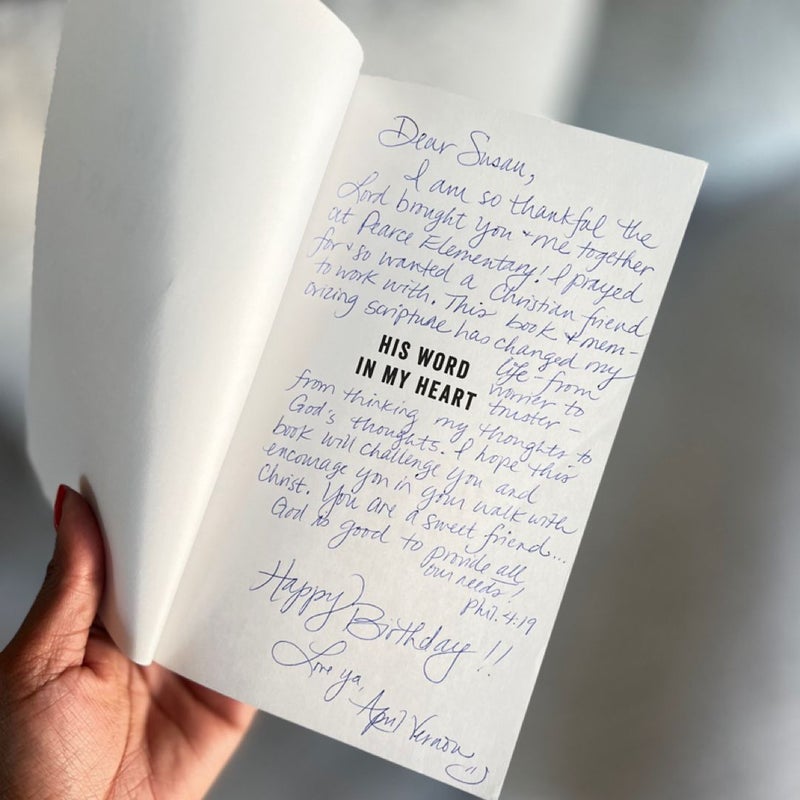 Dear Susan,
I am so thankful the
Lord brought you & me together
at Pearce Elementary! I prayed
for & so wanted a Christian friend
to work with. This book & mem-
orizing scripture has changed my
life - from
worrier to
truster -
HIS WORD
IN MY HEART
from thinking my thoughts to
God's thoughts. I hope this
book will challenge you and
encourage you in your walk with
Christ. You are a sweet friend...
God is good to provide all
our needs!
Phil. 4:19
Happy Birthday!!
Love ya,
April Vernon